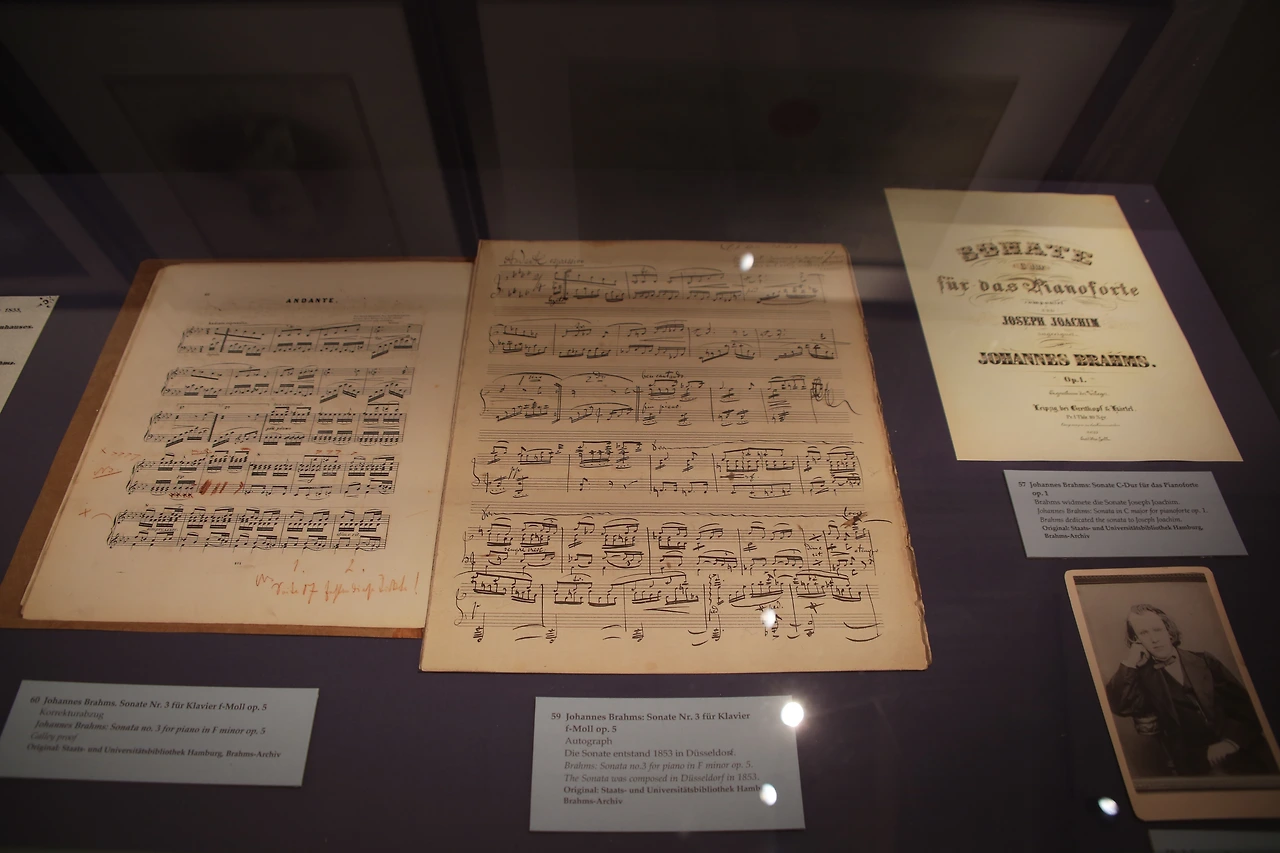 1853,
ANDANTE.
SONATE
für das Pianoforte
componirt
JOSEPH JOACHIM
JOHANNES BRAHMS.
Op.1.
Leipzig bei Breitkopf & Härtel.
57 Johannes Brahms: Sonate C-Dur für das Pianoforte
op. 1
Brahms widmete die Sonate Joseph Joachim.
Johannes Brahms: Sonata in C major for pianoforte op. 1.
Brahms dedicated the sonata to Joseph Joachim.
Original: Staats- und Universitätsbibliothek Hamburg,
Brahms-Archiv
60 Johannes Brahms. Sonate Nr. 3 für Klavier f-Moll op. 5
Korrekturabzug
Johannes Brahms: Sonata no. 3 for piano in F minor op. 5
Galley proof
Original: Staats- und Universitätsbibliothek Hamburg, Brahms-Archiv
59 Johannes Brahms: Sonate Nr. 3 für Klavier
f-Moll op. 5
Autograph
Die Sonate entstand 1853 in Düsseldorf.
Brahms: Sonata no.3 for piano in F minor op. 5.
The Sonata was composed in Düsseldorf in 1853.
Original: Staats- und Universitätsbibliothek Hamb
Brahms-Archiv